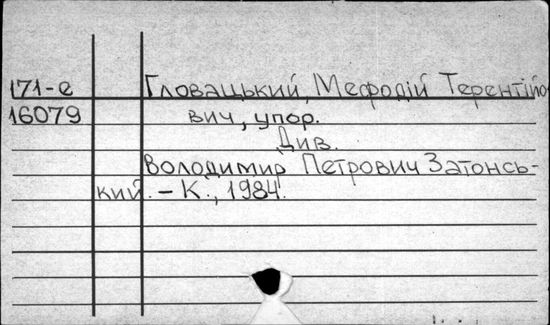 171-е Гловацький, Мефодій Терентійо-
16079 вич, упор.
Див.
Володимир Петрович Затонсь-
кий. – К., 1984.